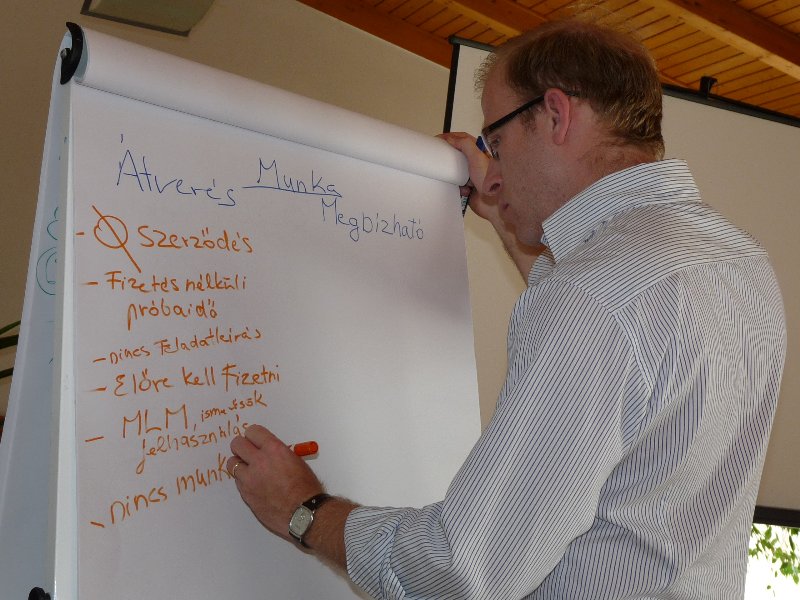 Átverés Munka Megbízható
- Ø Szerződés
- Fizetés nélküli
próbaidő
- nincs Feladatleírás
- Előre kell Fizetni
- MLM, ismerősök
felhasználás
- nincs munk